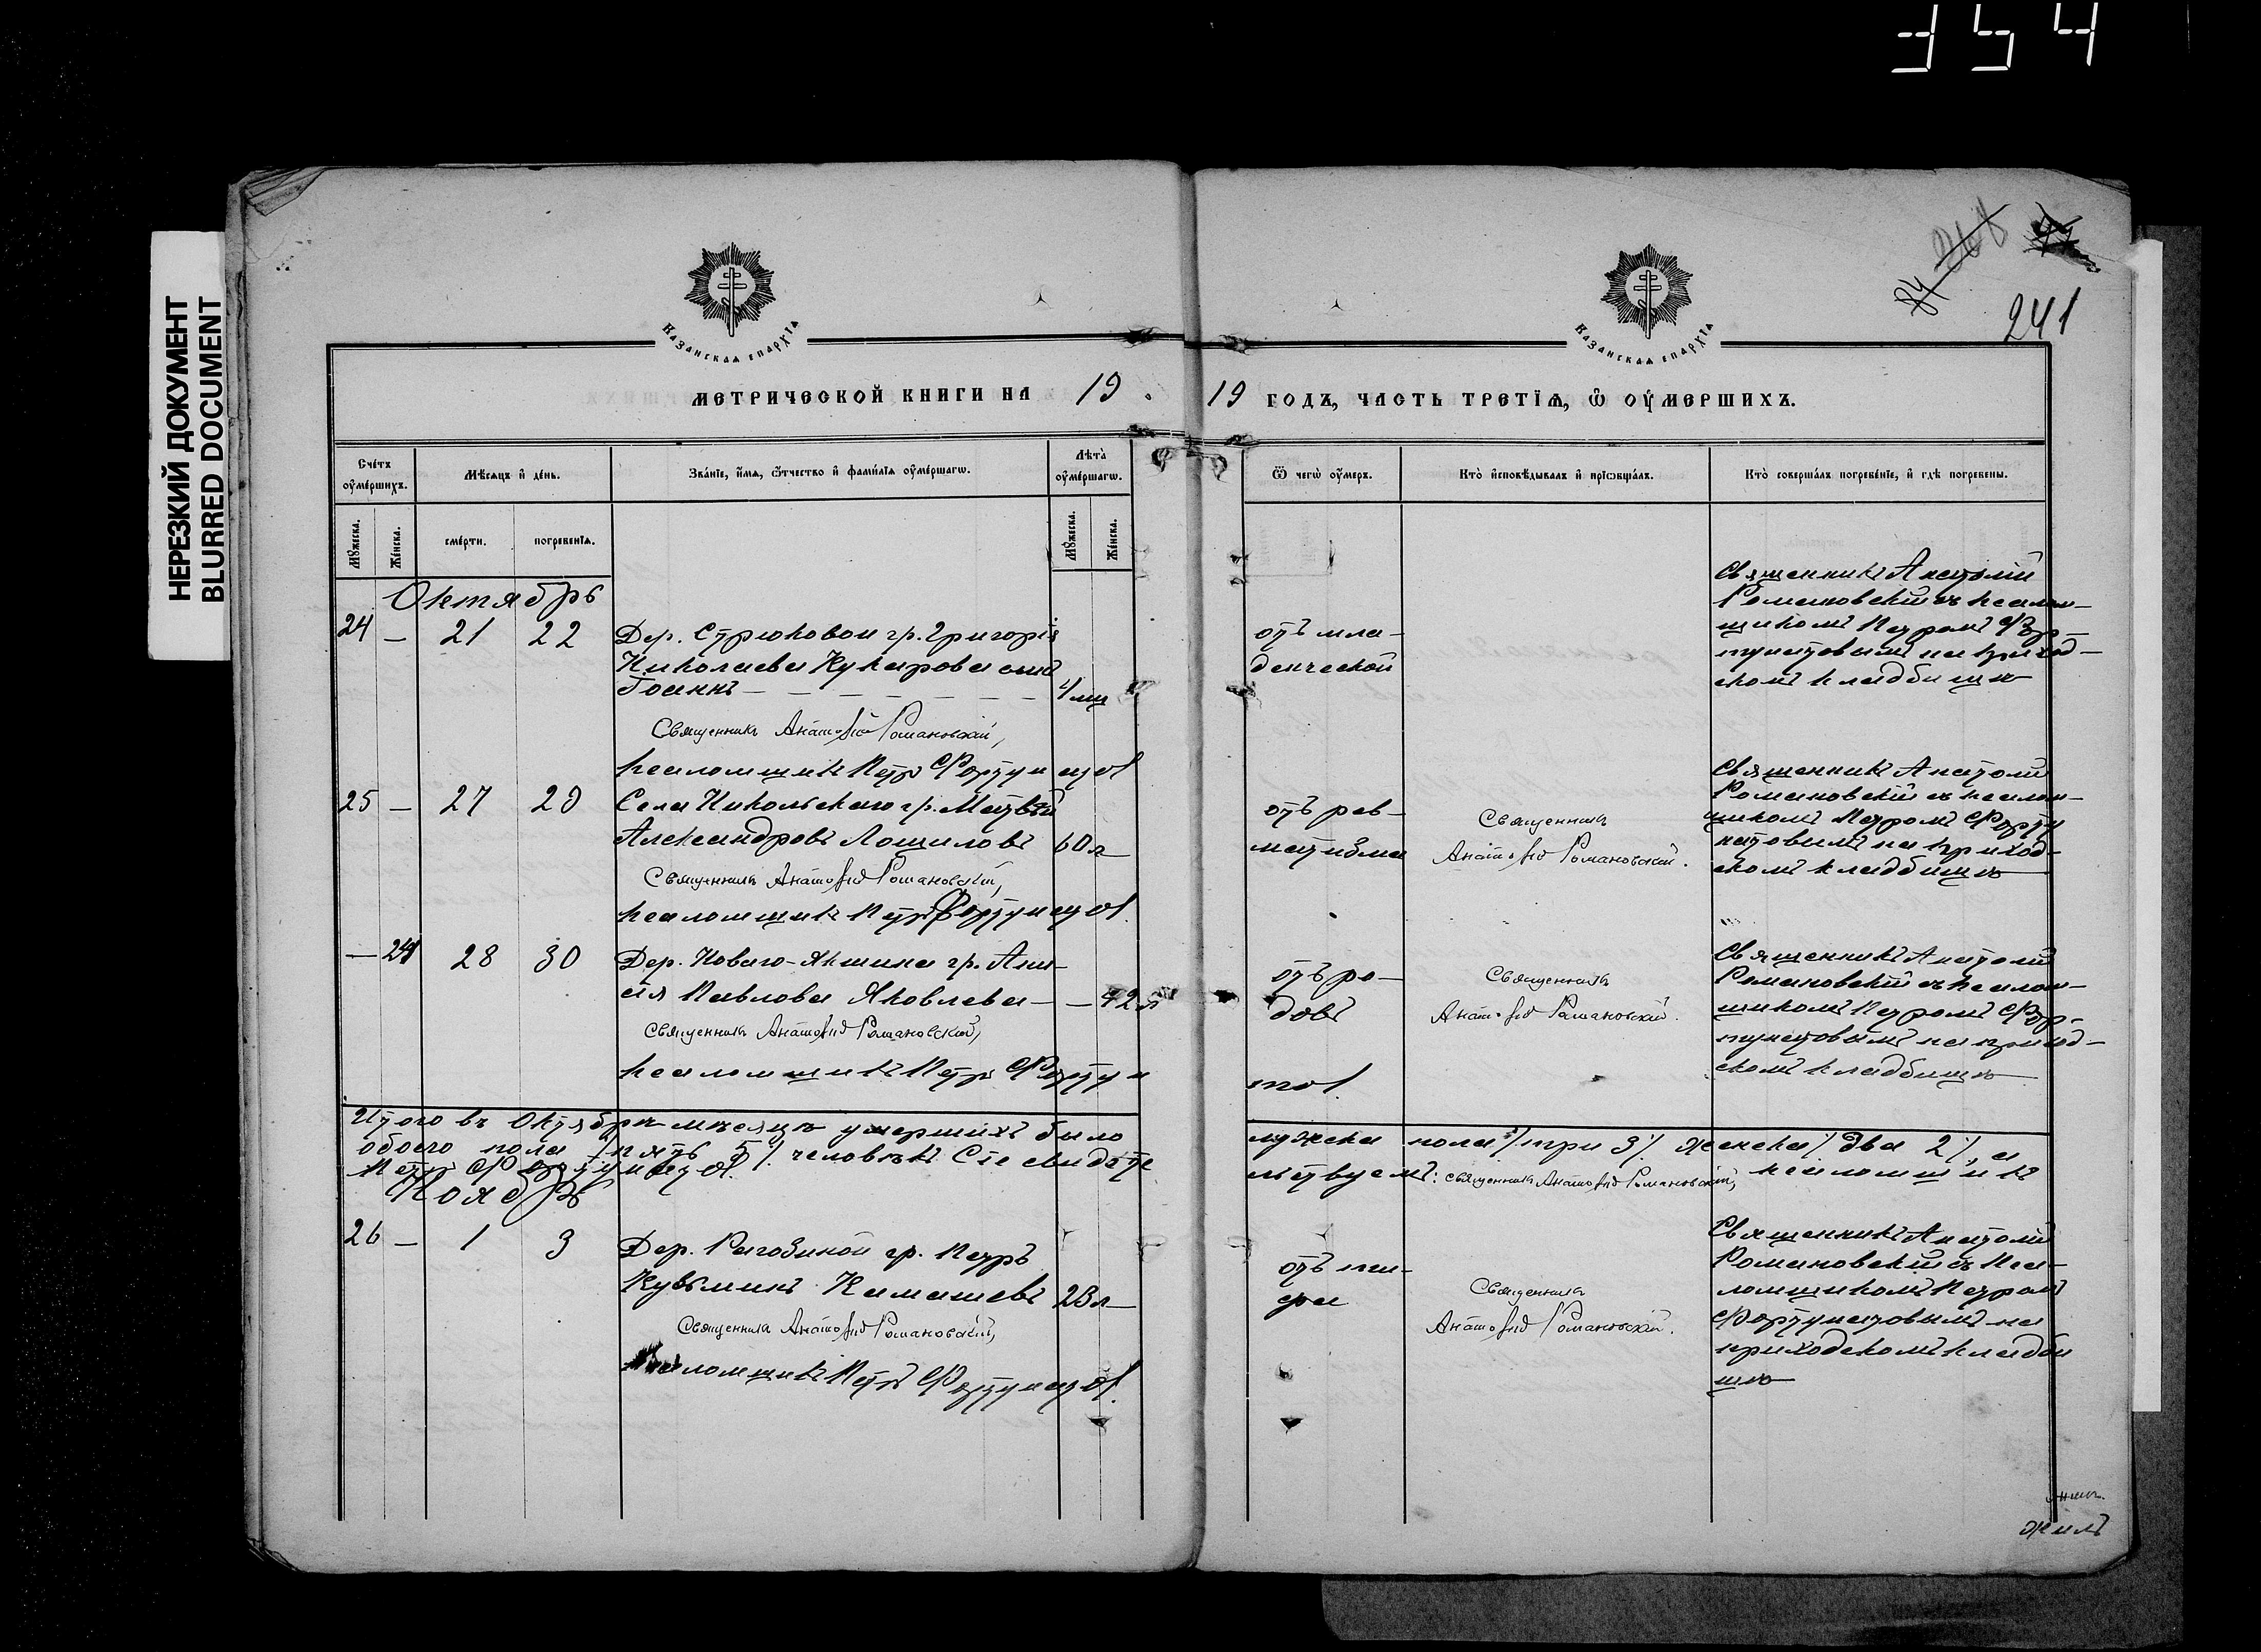 354
НЕРЕЗКИЙ ДОКУМЕНТ
BLURRED DOCUMENT
241
КАЗАНСКАѦ ЕПАРХІѦ
КАЗАНСКАѦ ЕПАРХІѦ
МЕТРИЧЕСКОЙ КНИГИ НА 19
19 ГОДЪ, ЧАСТЬ ТРЕТІѦ, Ѽ ОУМЕРШИХЪ.
Счетъ оумершихъ.
Мѣсѧцъ и день.
Званіе, имѧ, ѿтчество и фамиліѧ оумершагѡ.
Лѣта оумершагѡ.
Ѿ чегѡ оумеръ.
Кто исповѣдывалъ и пріѡбщалъ.
Кто совершалъ погребеніе, и гдѣ погребены.
Мужеска.
Женска.
смерти.
погребенїѧ.
Мужеска.
Женска.
Октябрь
24 — 21 22
Дер. Стрюковой гр. Григорія
Николаева Кукарова сынъ
Іоаннъ — 4 мц
Священникъ Анатолій Романовскій,
псаломщикъ Петръ Фортунатов
отъ мла-
денческой
Священникъ Анатолій
Романовскій съ псалом-
щикомъ Петромъ Фор-
тунатовымъ на приход-
скомъ кладбищѣ
25 — 27 29
Села Никольскаго гр. Матвѣй
Александровъ Лощиловъ 60 л
Священникъ Анатолій Романовскій,
псаломщикъ Петръ Фортунатов.
отъ рев-
матизма
Священникъ
Анатолій Романовскій.
Священникъ Анатолій
Романовскій съ псалом-
щикомъ Петромъ Форту
натовымъ на приход-
скомъ кладбищѣ
— 24 28 30
Дер. Новаго-Якшина гр.
Павлова Яковлева — 42 л
Священникъ Анатолій Романовскій,
псаломщикъ Петръ Фортуна
тов.
отъ ро-
довъ
Священникъ
Анатолій Романовскій.
Священникъ Анатолій
Романовскій съ псалом-
щикомъ Петромъ Фор-
тунатовымъ на приход-
скомъ кладбищѣ
Итого въ Октябрѣ мѣсяцѣ умершихъ было мужска пола / три 3 /. женска / два 2 /, а
обоего пола / пять 5 /. человѣкъ Сіе свидѣте льствуемъ: священникъ Анатолій Романовскій, псаломщикъ
Петръ Фортунатов.
Ноябрь
26 — 1 3
Дер. Рагозиной гр. Петръ
Кузьминъ Камашевъ 23 л
Священникъ Анатолій Романовскій,
псаломщикъ Петръ Фортунатов.
отъ ти-
фа
Священникъ
Анатолій Романовскій.
Священникъ Анатолій
Романовскій съ Пса-
ломщикомъ Петромъ
Фортунатовымъ на
приходскомъ кладби
щѣ